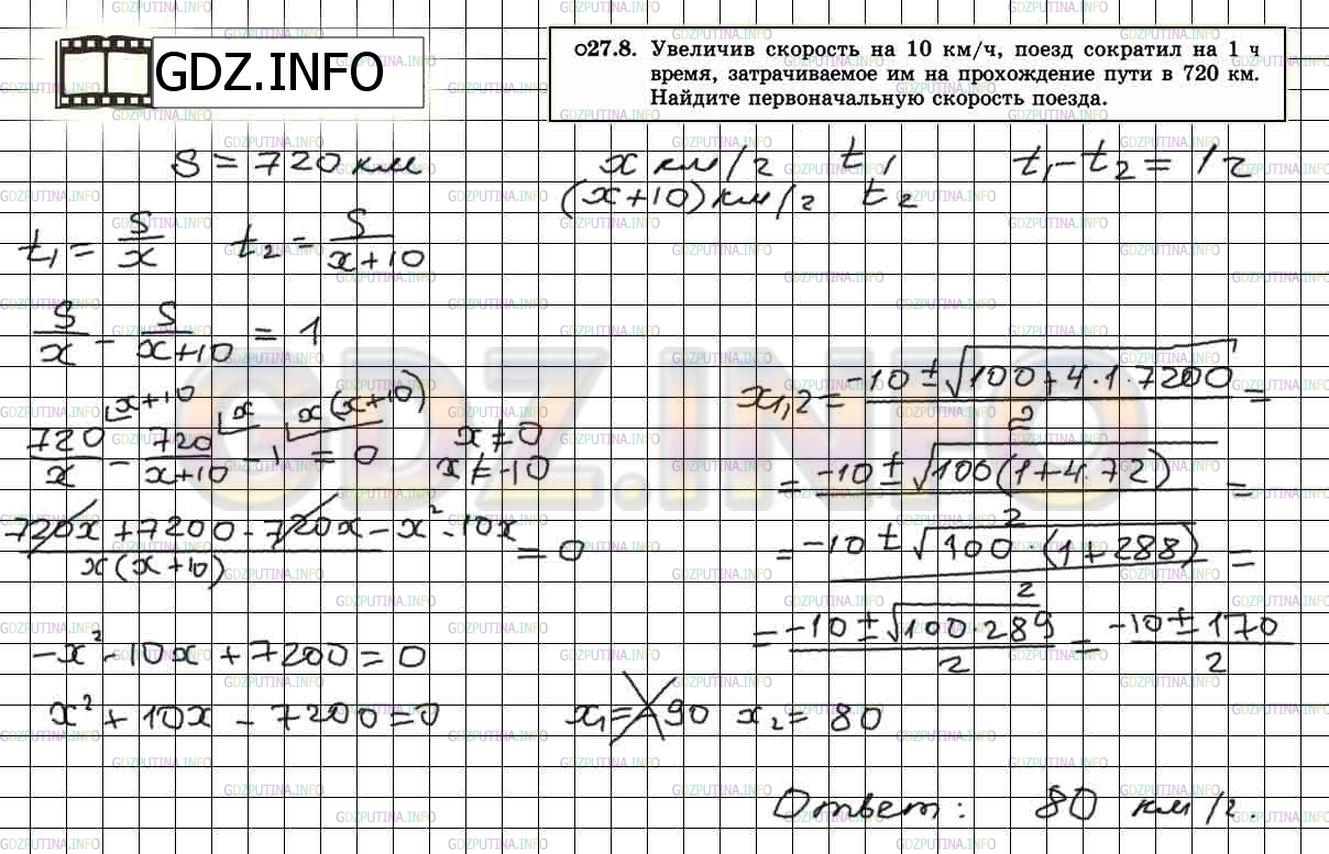 GDZ.INFO
О27.8. Увеличив скорость на 10 км/ч, поезд сократил на 1 ч
время, затрачиваемое им на прохождение пути в 720 км.
Найдите первоначальную скорость поезда.
S = 720 км x км/ч t₁ t₁ - t₂ = 1 ч
(x+10) км/ч t₂
t₁ = S/x t₂ = S/(x+10)
S/x - S/(x+10) = 1
720/x - 720/(x+10) - 1 = 0 x ≠ 0
x+10 x x(x+10) x ≠ -10
(720x + 7200 - 720x - x² - 10x)/(x(x+10)) = 0
-x² - 10x + 7200 = 0
x² + 10x - 7200 = 0
x₁,₂ = (-10 ± √(100 + 4·1·7200))/2 =
= (-10 ± √(100(1+4·72)))/2 =
= (-10 ± √(100·(1+288)))/2 =
= (-10 ± √(100·289))/2 = (-10 ± 170)/2
x₁ = -90 x₂ = 80
Ответ: 80 км/ч.
GDZ.INFO
GDZPUTINA.INFO